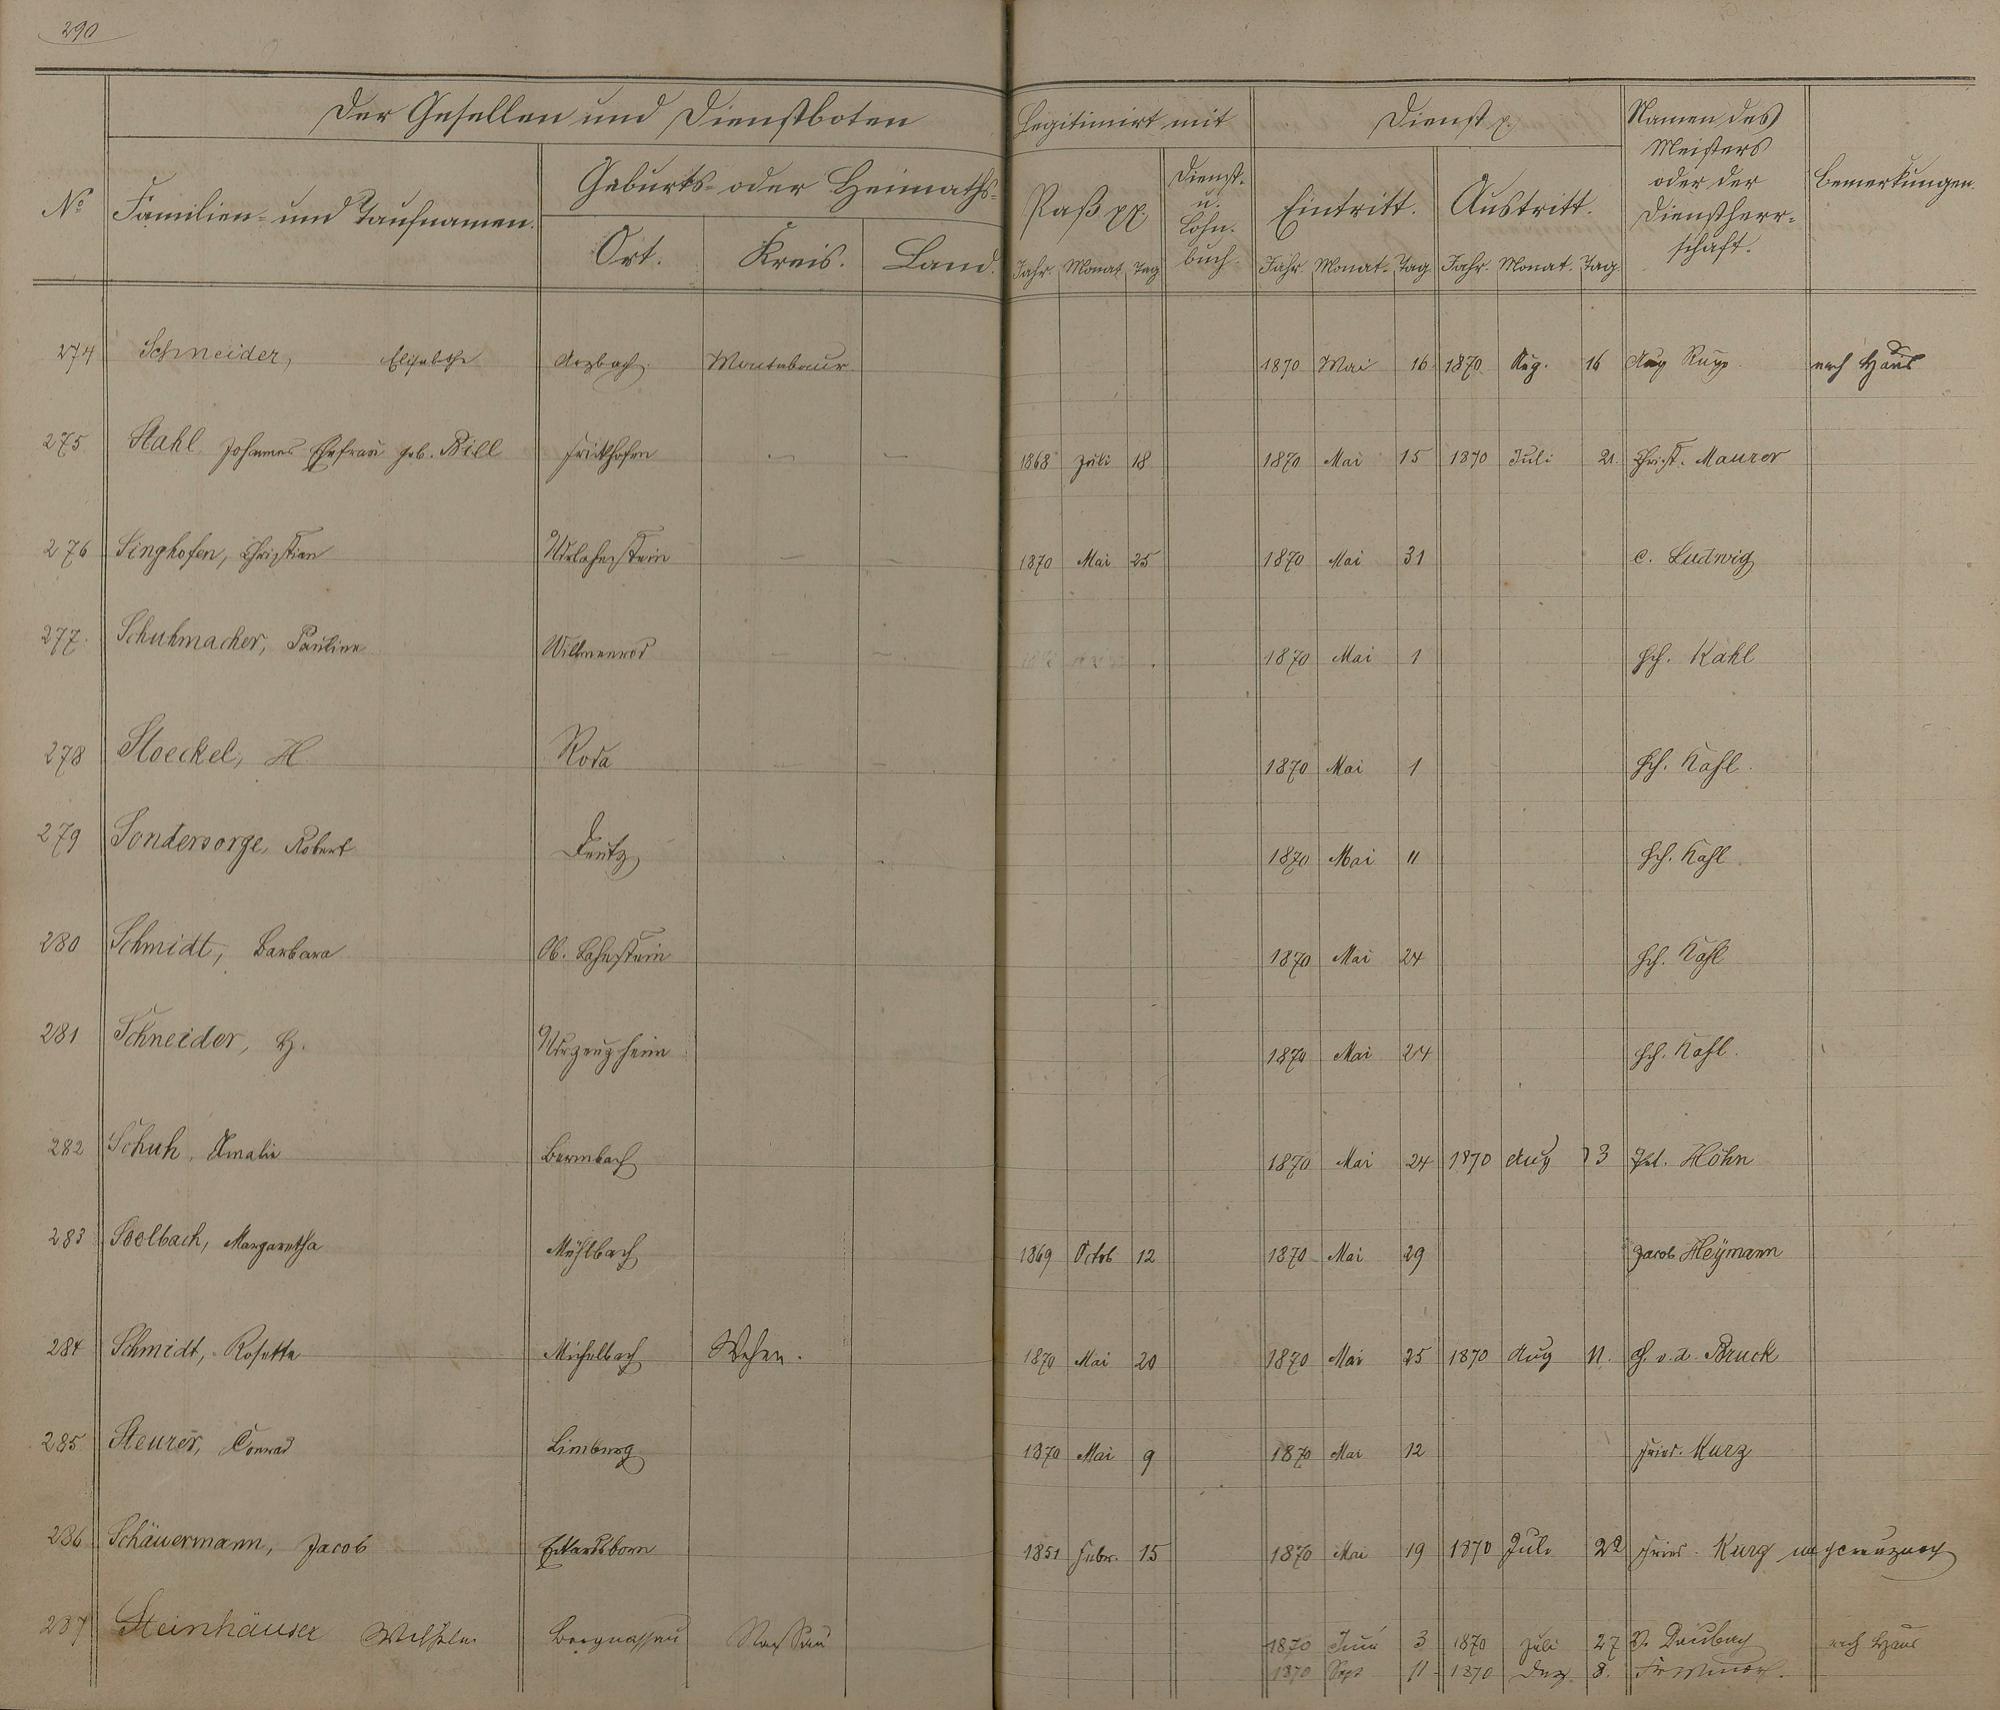 290
Der Gesellen und Dienstboten Legitimirt mit Dienst p. Namen des Meisters oder der Dienstherrschaft. Bemerkungen.
No Familien- und Taufnamen. Geburts- oder Heimaths- Paß pp. Dienst- u. Lohn- buch. Eintritt. Austritt.
Ort. Kreis. Land. Jahr. Monat Tag Jahr. Monat. Tag. Jahr. Monat. Tag.
274 Schneider, Elisabethe Arzbach. Montabaur 1870 Mai 16 1870 Aug. 16 Aug Rupp nach Haus
275 Stahl Johannes Ehefrau geb. Bill Frickhofen — — 1868 Juli 18 1870 Mai 15 1870 Juli 21. Christ. Maurer
276 Singhofen, Christian Ndrlahnstein — — 1870 Mai 25 1870 Mai 31 C. Ludwig
277. Schuhmacher, Pauline Willmenrod — — 1870 Mai 1 Hch. Kahl
278 Stoeckel, H. Roda — — 1870 Mai 1 Hch. Kahl.
279 Sondersorge, Robert Deutz 1870 Mai 11 Hch. Kahl.
280 Schmidt, Barbara Ob. Lahnstein 1870 Mai 24 Hch. Kahl
281 Schneider, H. 1870 Mai 24 Hch. Kahl.
282 Schuh, Amalie Bermbach 1870 Mai 24 1870 Aug 3 Pet. Höhn
283 Seelbach, Margaretha Mühlbach 1869 Octob 12 1870 Mai 29 Jacob Heÿmann
284 Schmidt, Rosetta Michelbach Wehen. 1870 Mai 20 1870 Mai 25 1870 Aug 11. v. d. Bruck
285 Steurer, Conrad Limburg 1870 Mai 9 1870 Mai 12 Fried. Kurz
286 Schäuermann, Jacob Eckardsborn 1851 Febr. 15 1870 Mai 19 1870 Juli 22 Fried. Kurz nach Creuznach
287 Steinhäuser Wilhelm Bergnassau Nassau 1870 Juni 3 1870 Juli 27 Daubach nach Haus
1870 Sept 11 1870 Dez. 8.